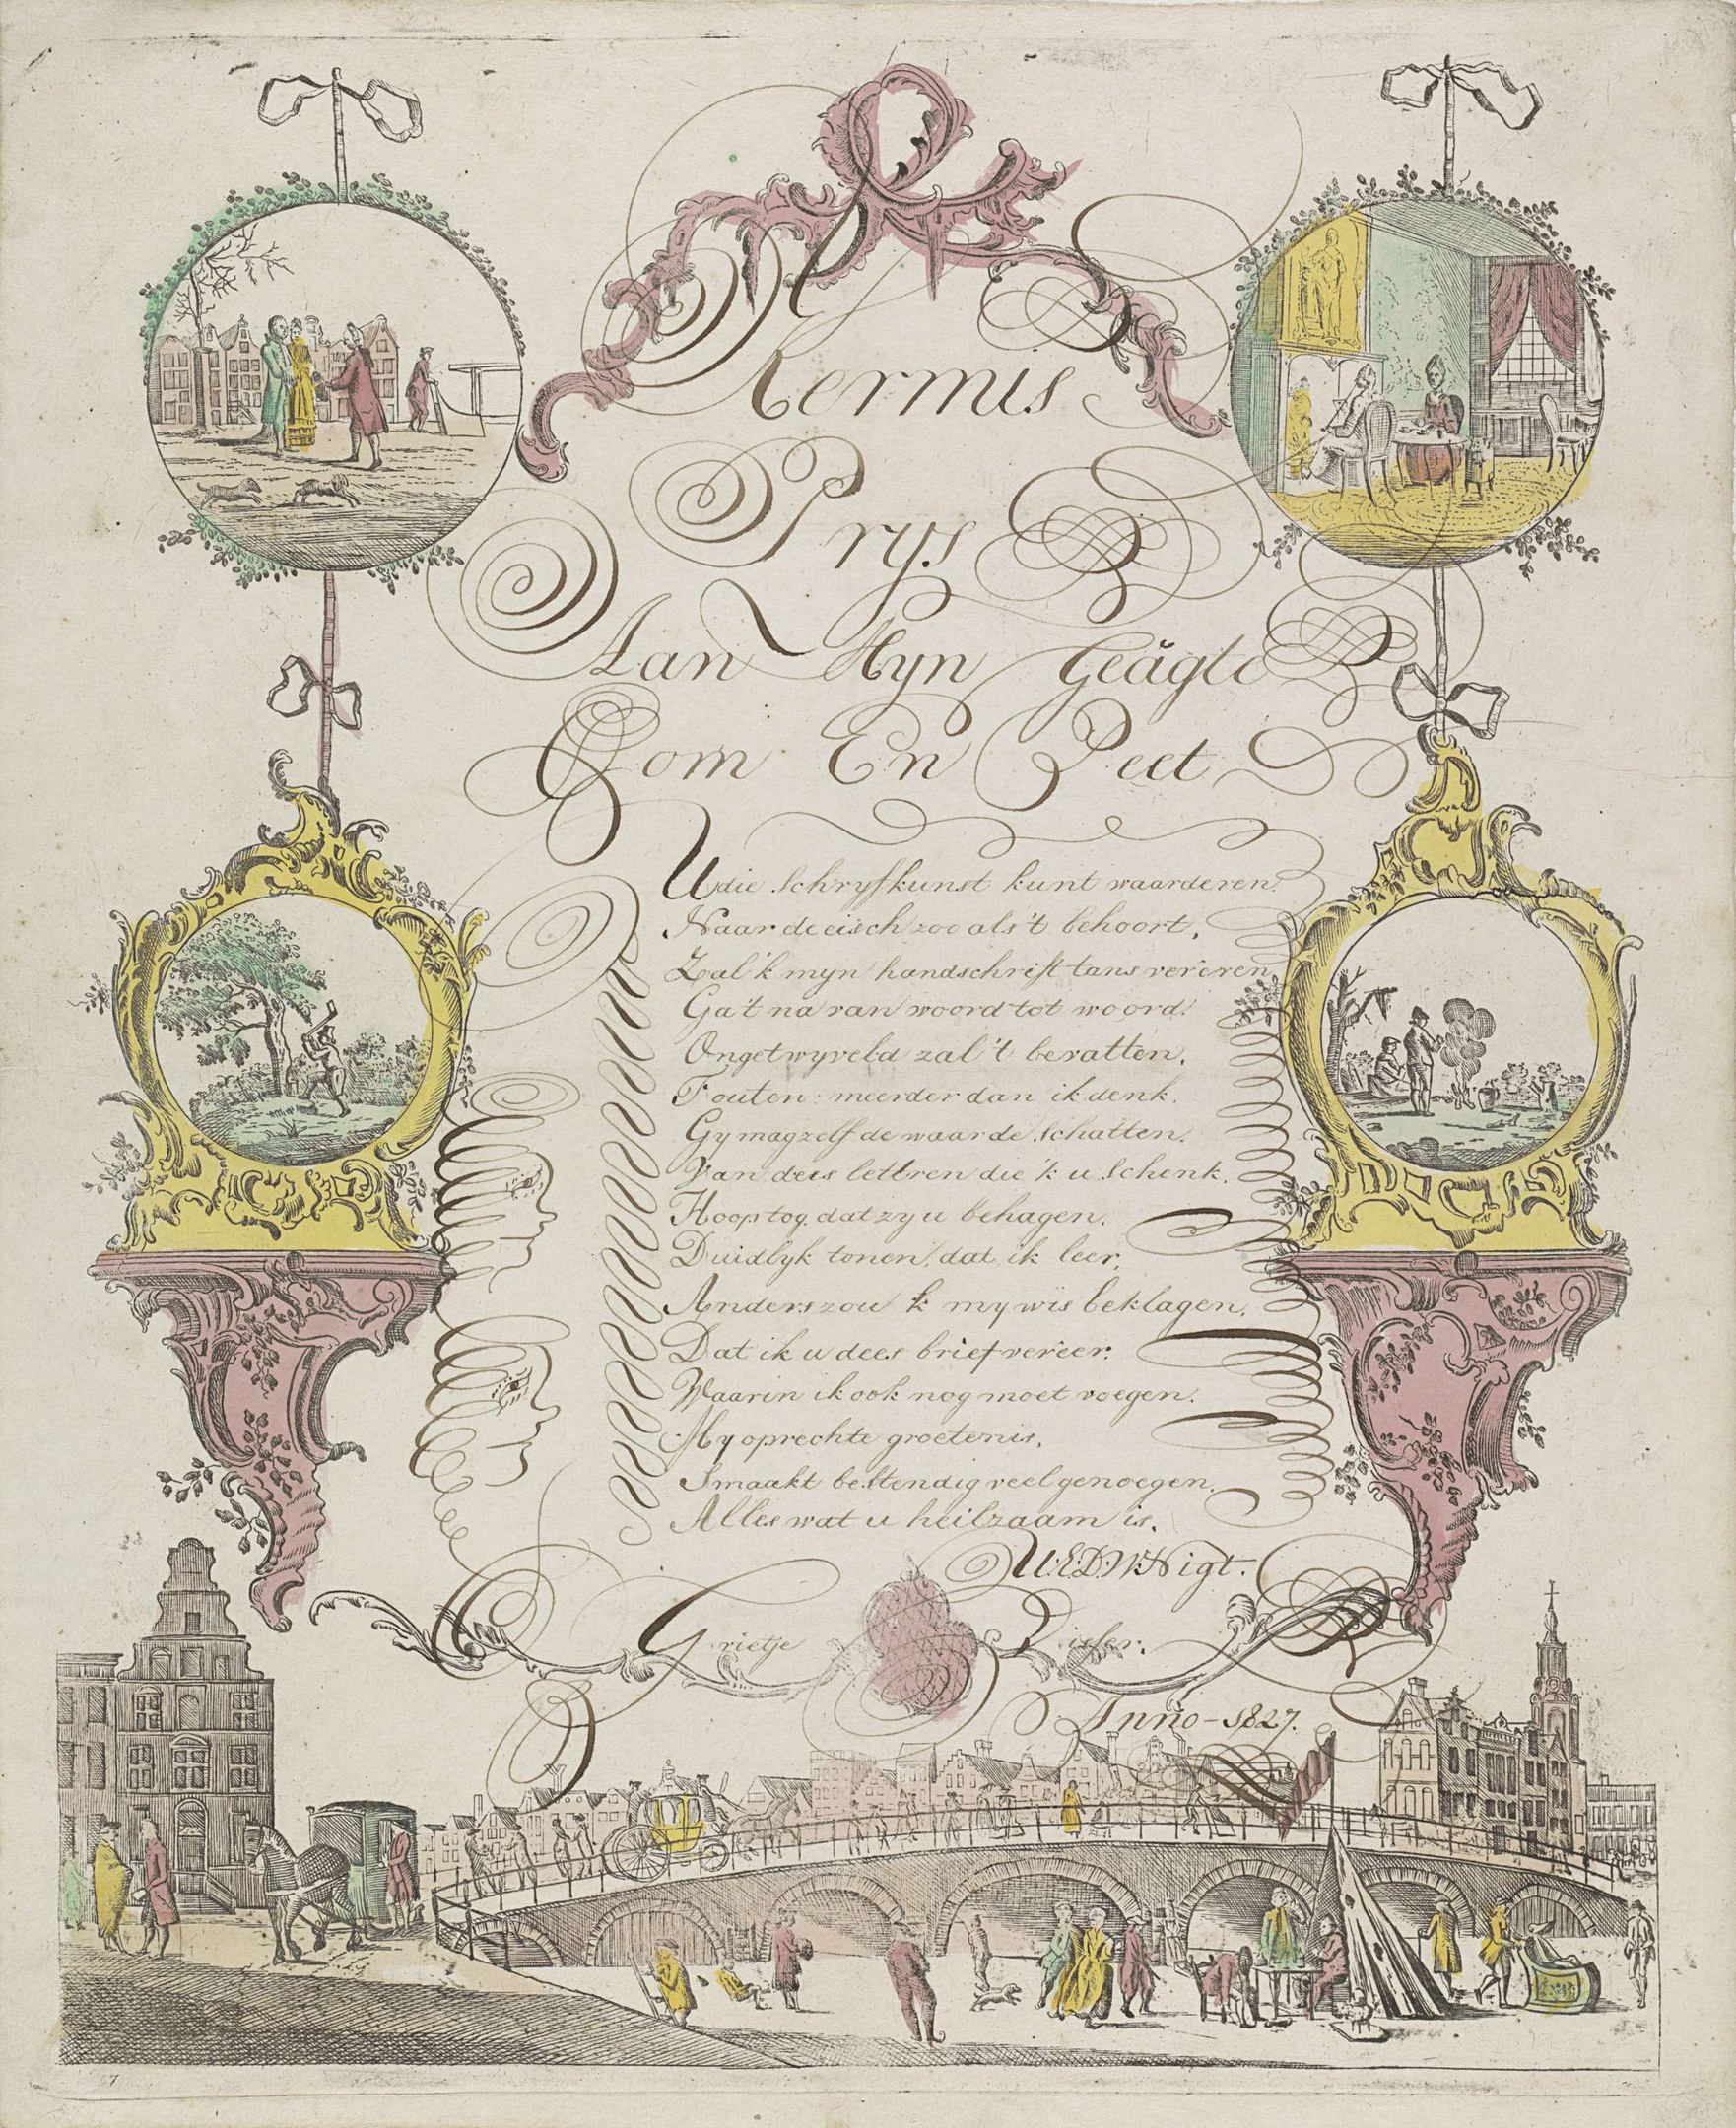 Kermis
Prys
Aan Myn Geägte
Oom En Peet
U die Schryfkunst kunt waarderen.
Naar de eisch zoo als 't behoort,
Zal 'k myn handschrift tans vereren,
Ga 't na van woord tot woord!
Ongetwyveld zal 't bevatten,
Fouten: meerder dan ik denk.
Gy mag zelf de waarde Schatten.
Van dees lettren die 'k u Schenk.
Hoop tog, dat zy u behagen.
Duidlyk tonen, dat ik leer,
Anders zou 'k my wis beklagen,
Dat ik u dees brief vereer.
Waarin ik ook nog moet voegen.
My oprechte groetenis,
Smaakt bestendig veel genoegen,
Alles wat u heilzaam is.
U:E:D:W:Nigt.
Grietje
Anno - 1827.
57